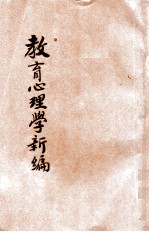 教育心理學新編